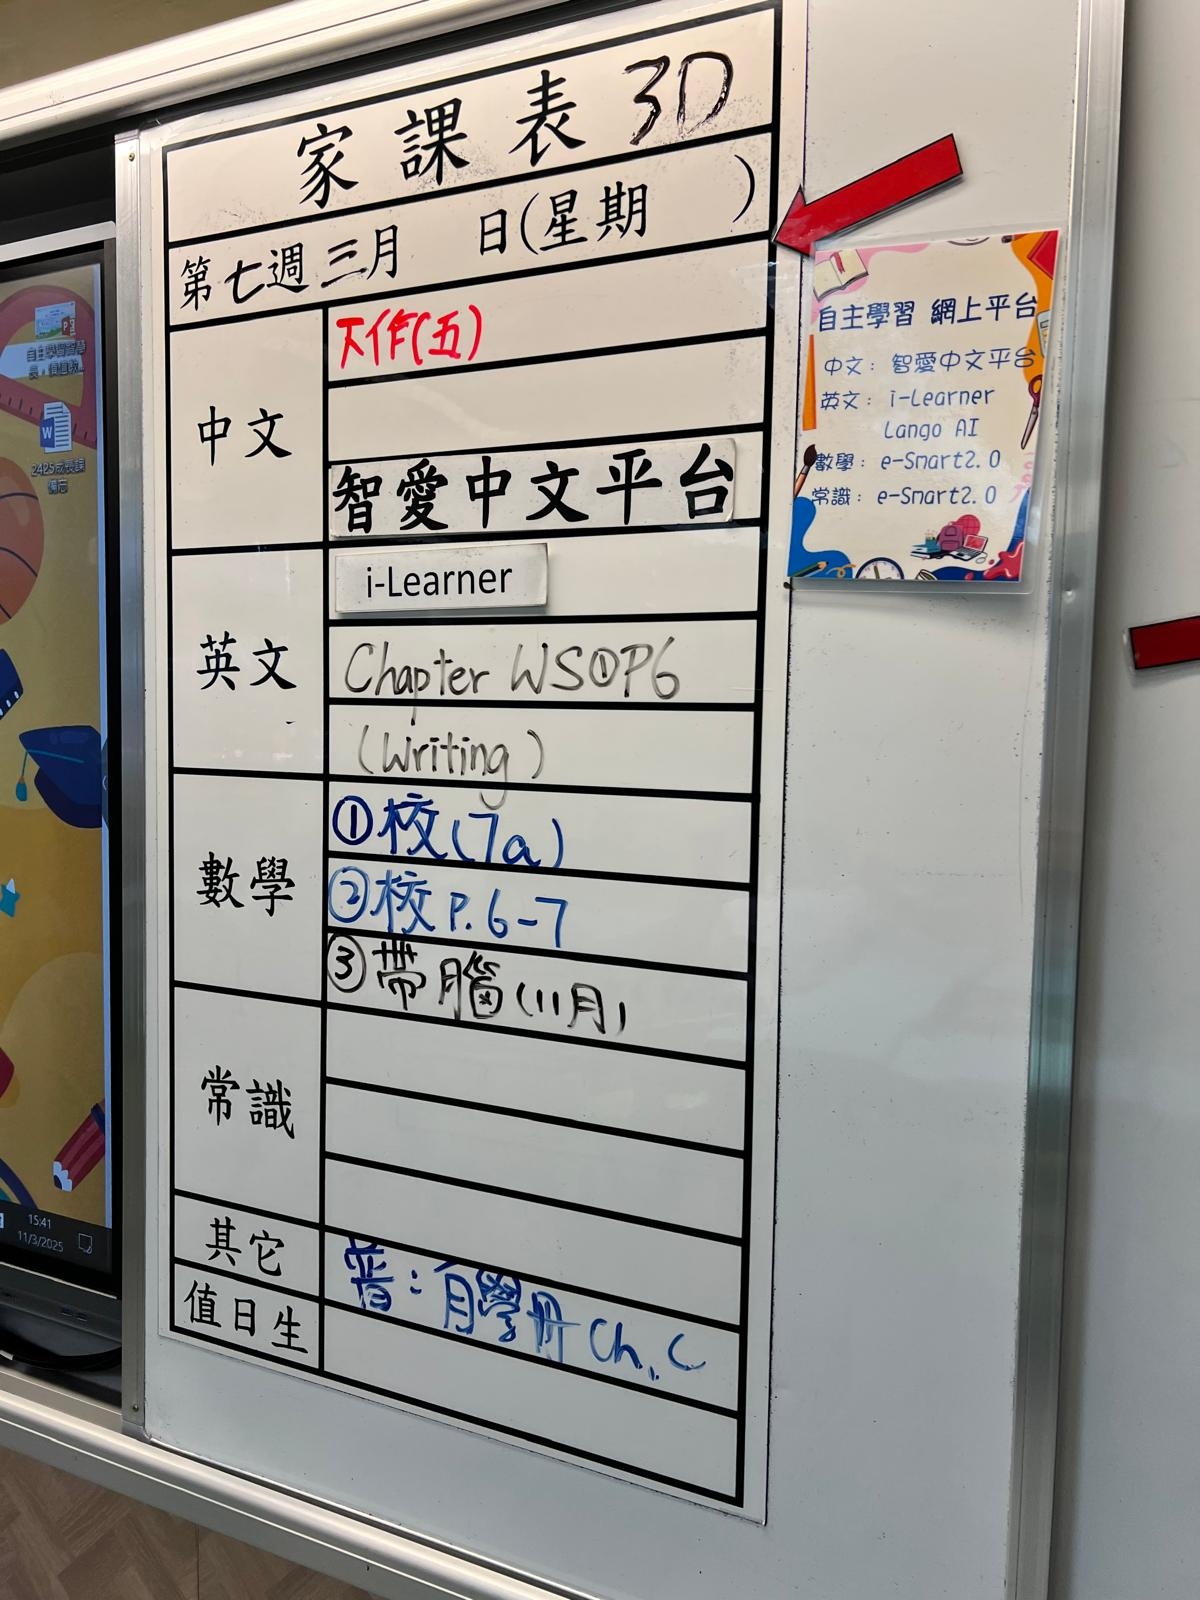 家課表 3D
第七週三月 日(星期 )
中文
大作(五)
智愛中文平台
英文
i-Learner
Chapter WS①P6
(Writing)
數學
①校(7a)
②校 P.6-7
③帶腦(11月)
常識
其它
普：自學冊 Ch.
值日生
自主學習 網上平台
中文： 智愛中文平台
英文： i-Learner
Lango AI
數學： e-Smart2.0
常識： e-Smart2.0
15:41
11/3/2025